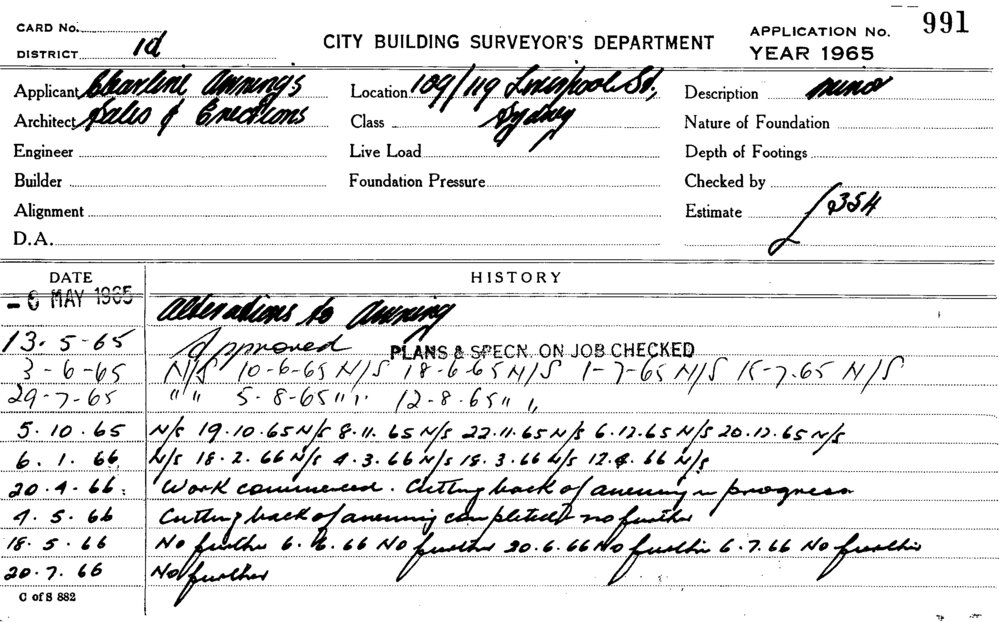 CARD No. APPLICATION No. 991
DISTRICT 1d CITY BUILDING SURVEYOR'S DEPARTMENT YEAR 1965
Applicant Clearline Awnings Location 109/119 Liverpool St., Description minor
Architect Sales & Erections Class Sydney Nature of Foundation
Engineer Live Load Depth of Footings
Builder Foundation Pressure Checked by
Alignment Estimate £354
D.A.
DATE HISTORY
- 6 MAY 1965 Alterations to Awning
13. 5-65 Approved PLANS & SPECN. ON JOB CHECKED
3-6-65 N/S 10-6-65 N/S 18-6-65 N/S 1-7-65 N/S 15-7.65 N/S
29-7-65 " " 5-8-65 " " 12-8-65 " "
5.10.65 N/S 19.10.65 N/S 8.11.65 N/S 22.11.65 N/S 6.12.65 N/S 20.12.65 N/S
6.1.66 N/S 18.2.66 N/S 4.3.66 N/S 18.3.66 N/S 12.4.66 N/S
20.4.66: Work commenced. Cutting back of awning in progress
4.5.66 Cutting back of awning completed no further
18.5.66 No further 6.6.66 No further 20.6.66 No further 6.7.66 No further
20.7.66 No further
C of S 882